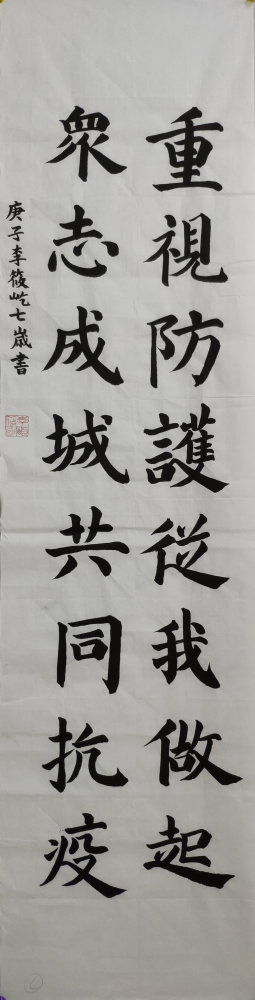 重視防護從我做起
衆志成城共同抗疫
庚子李筱屹七歲書